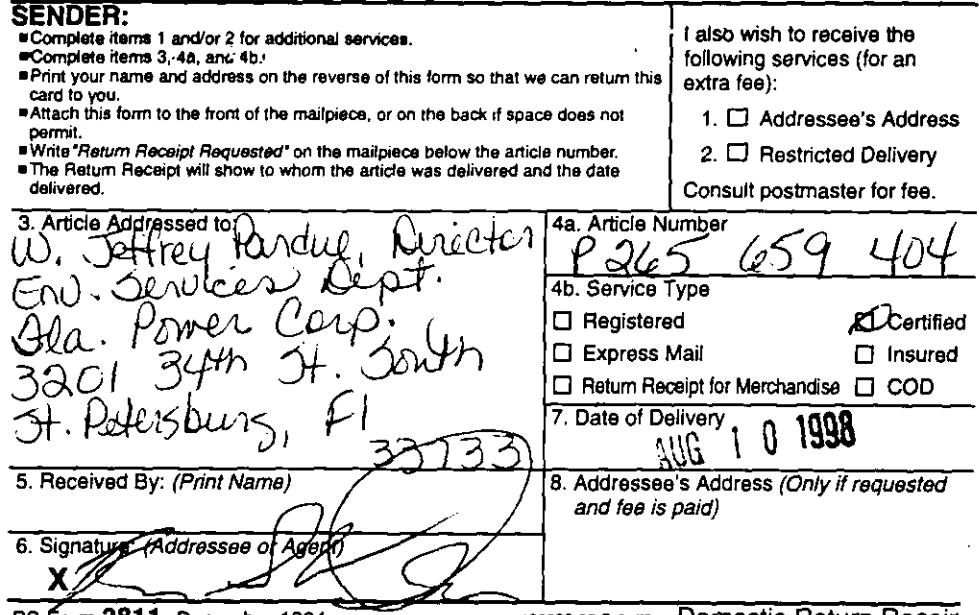 SENDER:
■Complete items 1 and/or 2 for additional services.
■Complete items 3, 4a, and 4b.
■Print your name and address on the reverse of this form so that we can return this
card to you.
■Attach this form to the front of the mailpiece, or on the back if space does not
permit.
■Write "Return Receipt Requested" on the mailpiece below the article number.
■The Return Receipt will show to whom the article was delivered and the date
delivered.
I also wish to receive the
following services (for an
extra fee):
1. ☐ Addressee's Address
2. ☐ Restricted Delivery
Consult postmaster for fee.
3. Article Addressed to:
W. Jeffrey Pardue, Director
Env. Services Dept.
Fla. Power Corp.
3201 34th St. South
St. Petersburg, Fl
33733
4a. Article Number
P 265 659 404
4b. Service Type
☐ Registered
☑ Certified
☐ Express Mail
☐ Insured
☐ Return Receipt for Merchandise
☐ COD
7. Date of Delivery
AUG 10 1998
5. Received By: (Print Name)
8. Addressee's Address (Only if requested
and fee is paid)
6. Signature: (Addressee or Agent)
X
PS Form 3811, December 1994
Domestic Return Receipt